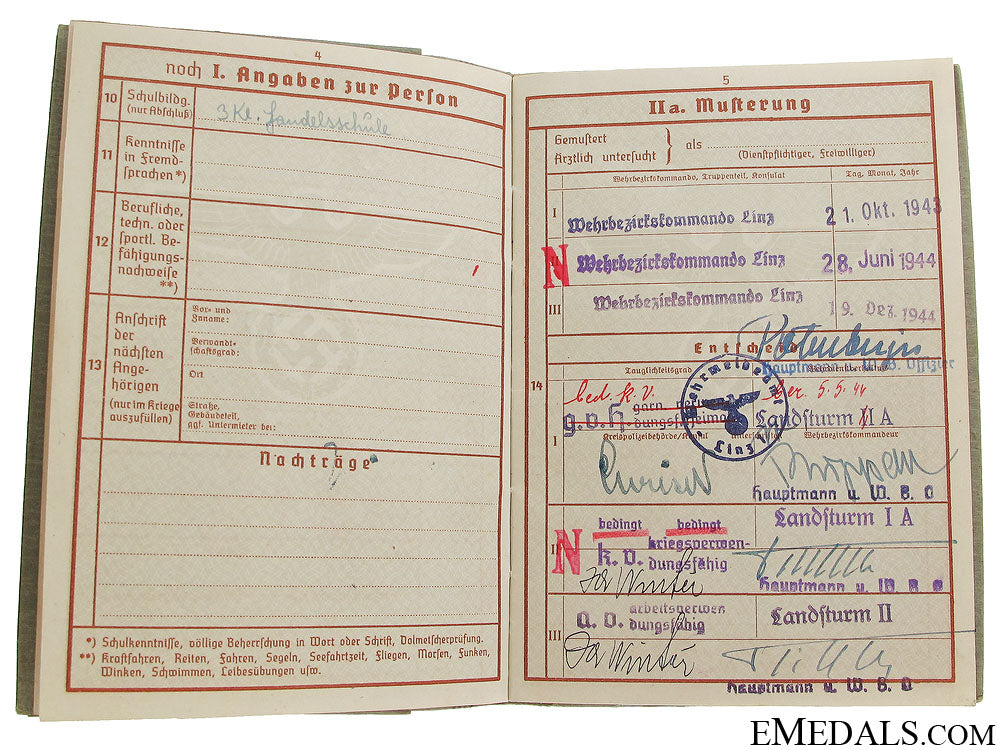 4
noch I. Angaben zur Person
10 Schulbildg.
(nur Abschluß)
3 Kl. Handelsschule
11 Kenntnisse
in Fremd-
sprachen *)
12 Berufliche,
techn. oder
sportl. Be-
fähigungs-
nachweise
**)
13 Anschrift
der
nächsten
Ange-
hörigen
(nur im Kriege
auszufüllen)
Vor- und
Zuname:
Verwandt-
schaftsgrad:
Ort
Straße,
Gebäudeteil,
ggf. Untermieter bei:
Nachträge
*) Schulkenntnisse, völlige Beherrschung in Wort oder Schrift, Dolmetscherprüfung.
**) Kraftfahren, Reiten, Fahren, Segeln, Seefahrtzeit, Fliegen, Morsen, Funken,
Winken, Schwimmen, Leibesübungen usw.
5
IIa. Musterung
Gemustert
Ärztlich untersucht } als
(Dienstpflichtiger, Freiwilliger)
Wehrbezirkskommando, Truppenteil, Konsulat
Tag, Monat, Jahr
I Wehrbezirkskommando Linz 21. Okt. 1943
N Wehrbezirkskommando Linz 28. Juni 1944
III Wehrbezirkskommando Linz 19. Dez. 1944
Entscheid
Hauptmann u. W.B. Offizier
14
Tauglichkeitsgrad
bed. k.v.
5.5.44
g.v.H.
Landsturm II A
Wehrmeldeamt
Linz
I
Kreispolizeibehörde/Konsul
Wehrbezirkskommandeur
Hauptmann u. W. B. O
bedingt bedingt
Landsturm I A
II
N
k. v. kriegsverwen-
dungsfähig
Dr Winter
Hauptmann u. W. B. O
III
a. v. arbeitsverwen
dungsfähig
Landsturm II
Dr Winter
Hauptmann u. W. B. O
EMEDALS.COM